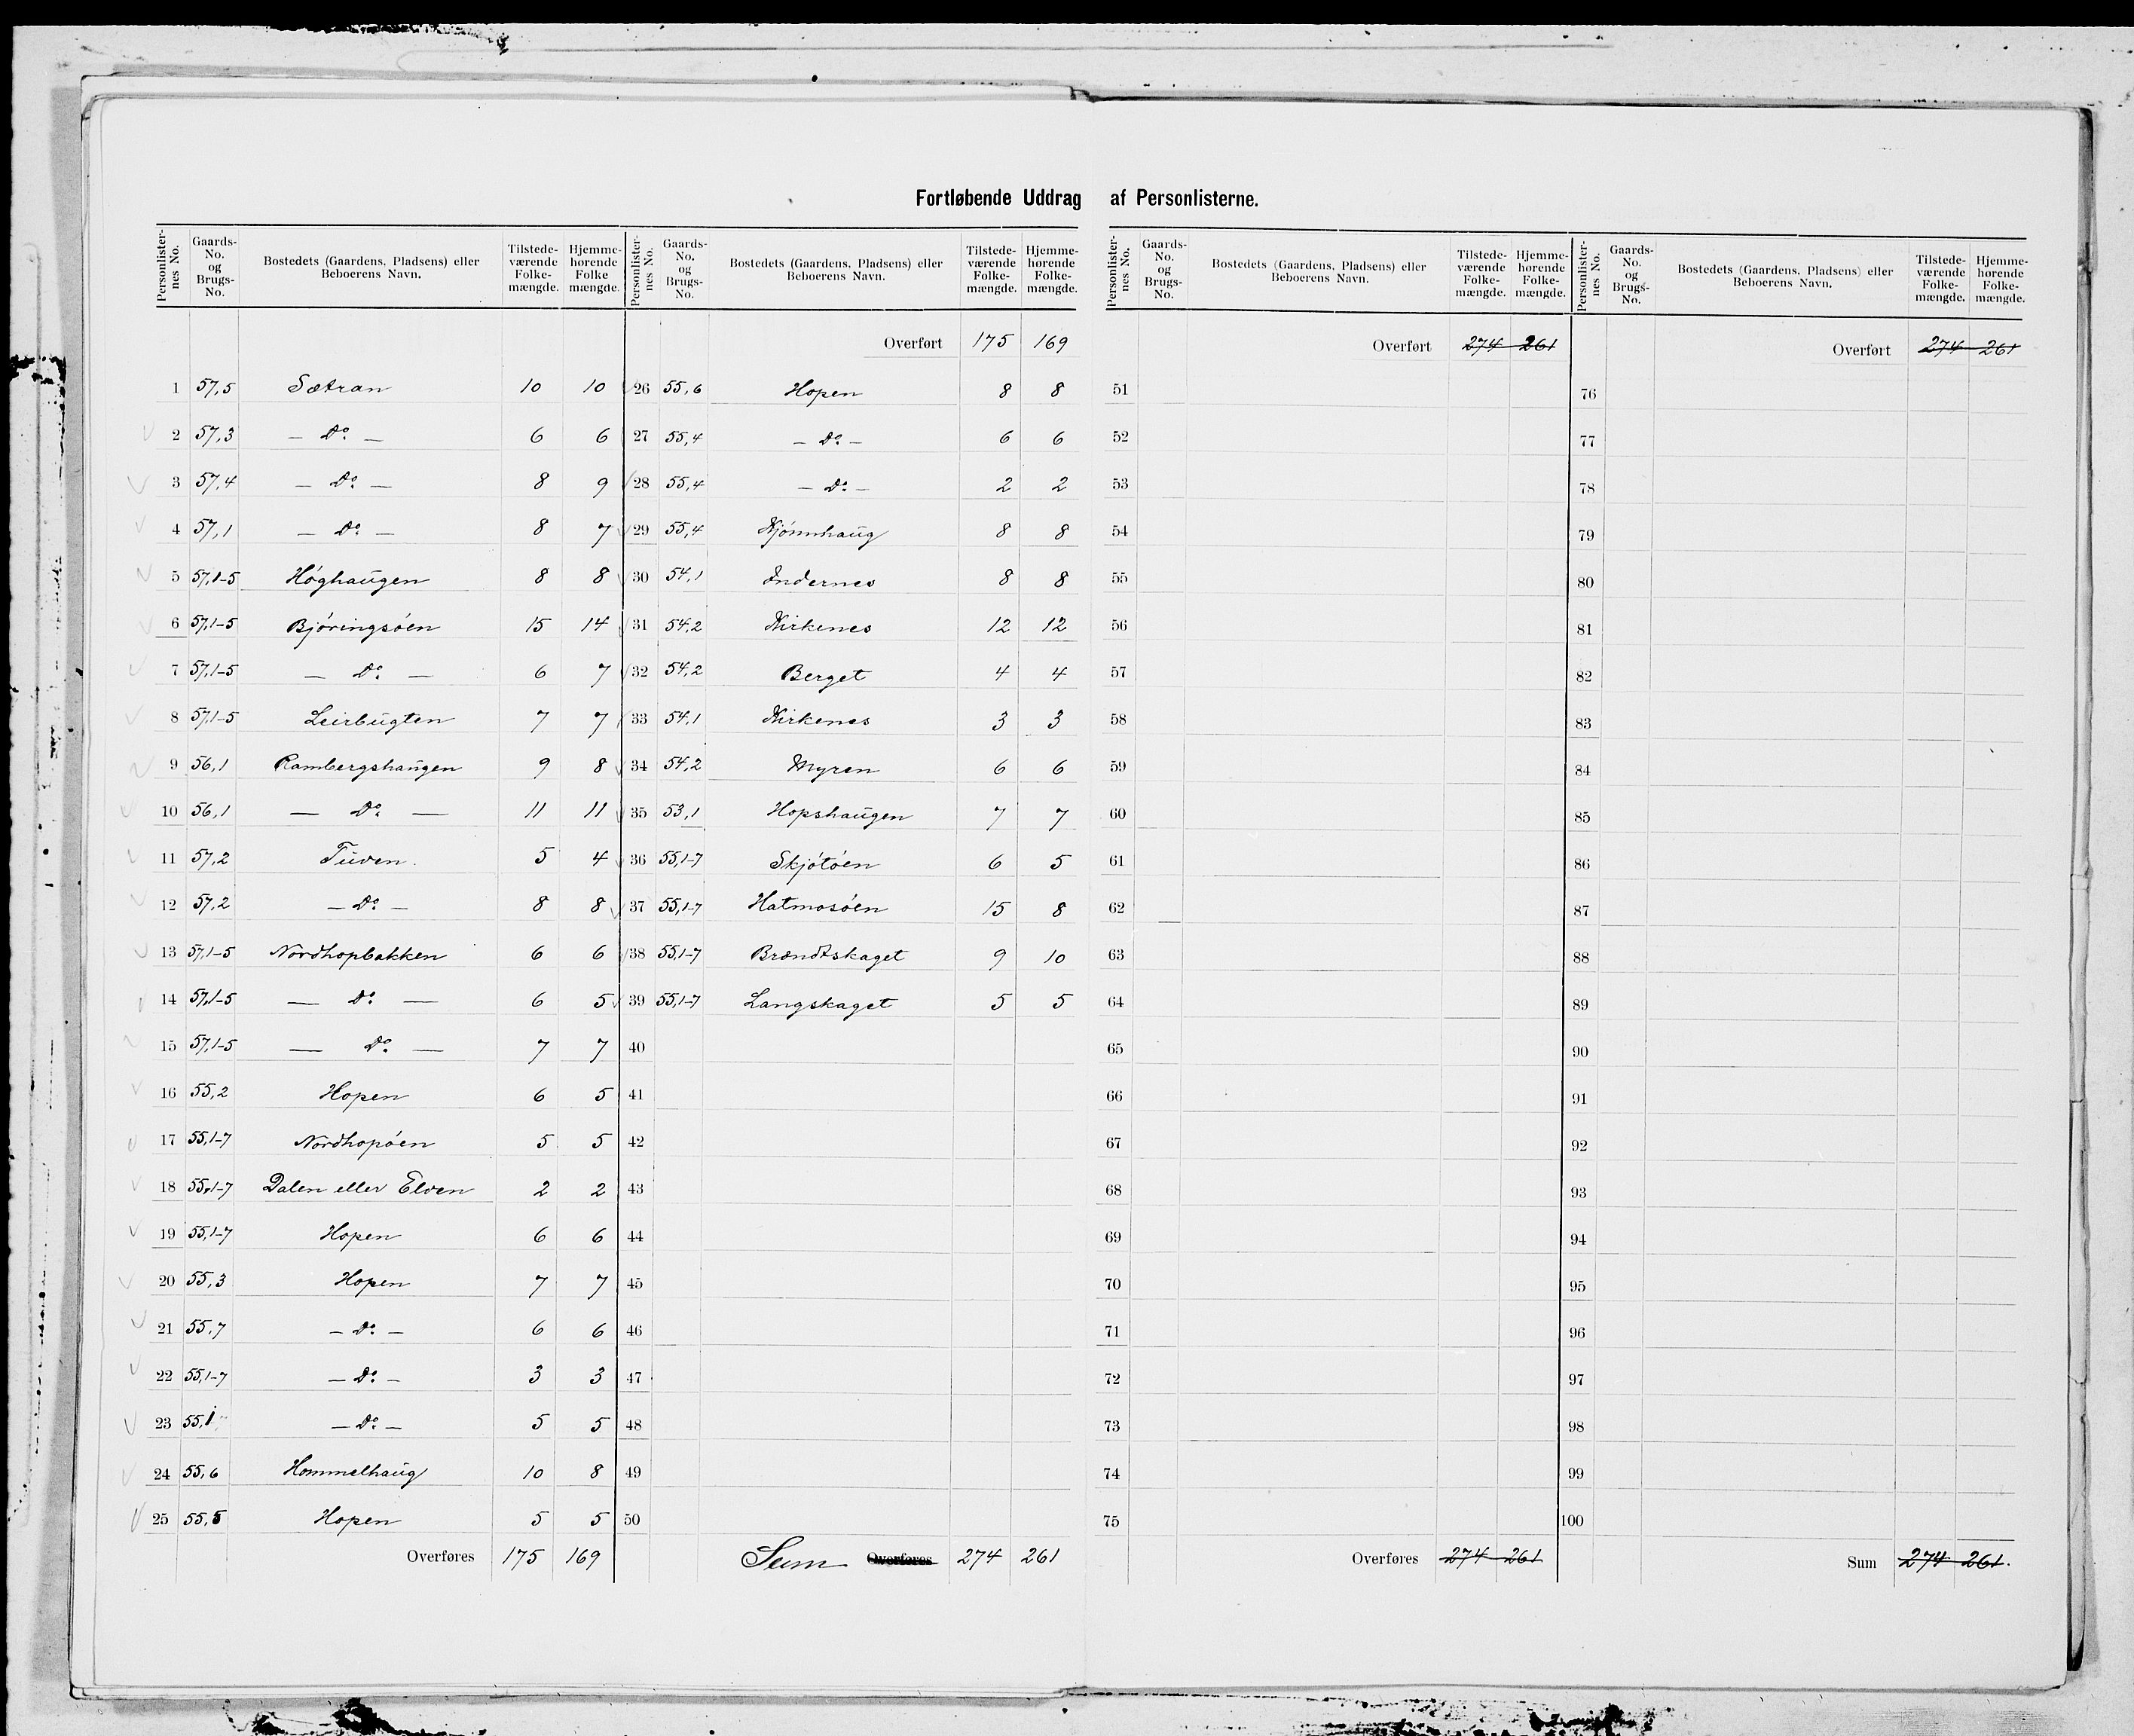 Fortløbende Uddrag af Personlisterne.
Personlister-nes No. Gaards-No. og Brugs-No. Bostedets (Gaardens, Pladsens) eller Beboerens Navn. Tilstede-værende Folke-mængde. Hjemme-hørende Folke mængde.
1 57,5 Sætran 10 10
2 57,3 — Do — 6 6
3 57,4 — Do — 8 9
4 57,1 — Do — 8 7
5 57,1-5 Høghaugen 8 8
6 57,1-5 Bjøringsøen 15 14
7 57,1-5 — Do — 6 7
8 57,1-5 Leirbugten 7 7
9 56,1 Rambergshaugen 9 8
10 56,1 — Do — 11 11
11 57,2 Tuven. 5 4
12 57,2 — Do — 8 8
13 57,1-5 Nordhopbakken 6 6
14 57,1-5 — Do — 6 5
15 57,1-5 — Do — 7 7
16 55,2 Hopen 6 5
17 55,1-7 Nordhopøen 5 5
18 55,1-7 Dalen eller Elven 2 2
19 55,1-7 Hopen 6 6
20 55,3 Hopen 7 7
21 55,7 — Do — 6 6
22 55,1-7 — Do — 3 3
23 55,1 — Do — 5 5
24 55,6 Hommelhaug 10 8
25 55,5 Hopen 5 5
Overføres 175 169
Personlister-nes No. Gaards-No. og Brugs-No. Bostedets (Gaardens, Pladsens) eller Beboerens Navn. Tilstede-værende Folke-mængde. Hjemme-hørende Folke-mængde.
Overført 175 169
26 55,6 Hopen 8 8
27 55,4 — Do — 6 6
28 55,4 — Do — 2 2
29 55,4 Kjønnhaug 8 8
30 54,1 Indernes 8 8
31 54,2 Kirkenes 12 12
32 54,2 Berget 4 4
33 54,1 Kirkenes 3 3
34 54,2 Myren 6 6
35 53,1 Hopshaugen 7 7
36 55,1-7 Skjøtøen 6 5
37 55,1-7 Hatmosøen 15 8
38 55,1-7 Brændtskaget 9 10
39 55,1-7 Langskaget 5 5
40
41
42
43
44
45
46
47
48
49
50
Sum Overføres 274 261
Personlister-nes No. Gaards-No. og Brugs-No. Bostedets (Gaardens, Pladsens) eller Beboerens Navn. Tilstede-værende Folke-mængde. Hjemme-hørende Folke-mængde.
Overført 274 261
51
52
53
54
55
56
57
58
59
60
61
62
63
64
65
66
67
68
69
70
71
72
73
74
75
Overføres 274 261
Personlister-nes No. Gaards-No. og Brugs-No. Bostedets (Gaardens, Pladsens) eller Beboerens Navn. Tilstede-værende Folke-mængde. Hjemme-hørende Folke-mængde.
Overført 274 261
76
77
78
79
80
81
82
83
84
85
86
87
88
89
90
91
92
93
94
95
96
97
98
99
100
Sum 274 261.